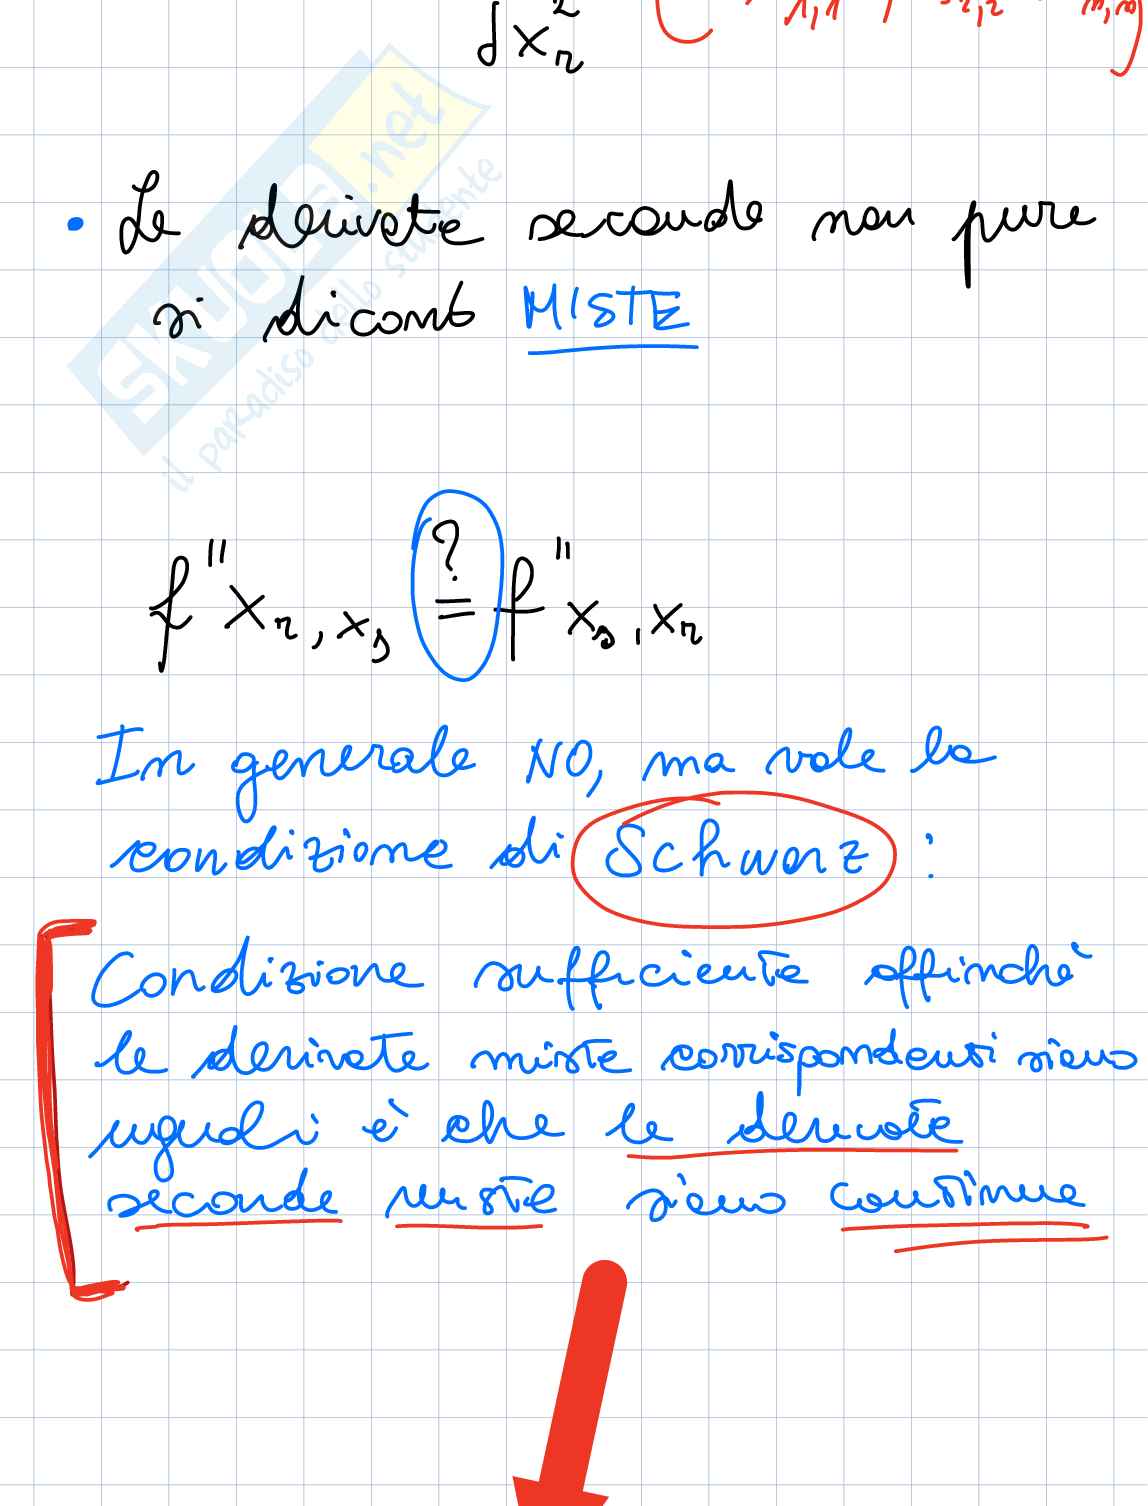 dx²ᵣ ( 1,1 , 2,2 n,n )
• Le derivate seconde non pure
si dicono MISTE
SKUOLA.net
il paradiso dello studente
f''xᵣ,xₛ ?= f''xₛ,xᵣ
In generale NO, ma vale la
condizione di Schwarz :
Condizione sufficiente affinchè
le derivate miste corrispondenti siano
uguali è che le derivate
seconde miste siano continue